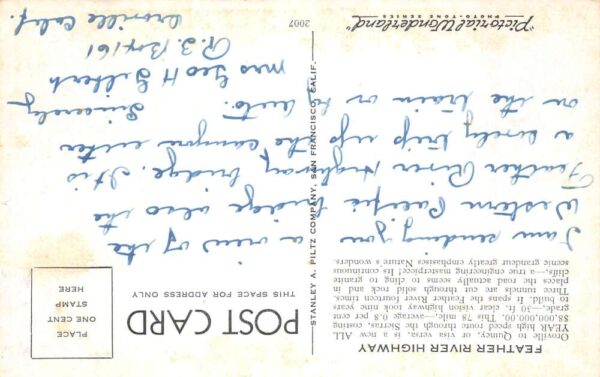 FEATHER RIVER HIGHWAY
Oroville to Quincy, or visa versa, is a new ALL
YEAR high speed route through the Sierras, costing
$8,000,000.00. This 78 mile,—average 0.8 per cent
grade,—30 ft. clear vision highway took nine years
to build. It spans the Feather River fourteen times.
Three tunnels are cut through solid rock and in
places the road actually seems to cling to granite
cliffs,—a true engineering masterpiece! Its continuous
scenic grandeur greatly emphasises Nature's wonders.
I am sending you
a view of the
Western Pacific bridge also the
Feather River Highway bridge. It is
a lovely trip up the canyon either
on the train or by auto.
Sincerely
Mrs Geo H Gilbert
R. 3. Box 161
Oroville Calif.
POST CARD
THIS SPACE FOR ADDRESS ONLY
PLACE
ONE CENT
STAMP
HERE
STANLEY A. PILTZ COMPANY, SAN FRANCISCO, CALIF.
"Pictorial Wonderland"
PHOTO-TONE SERIES
2007